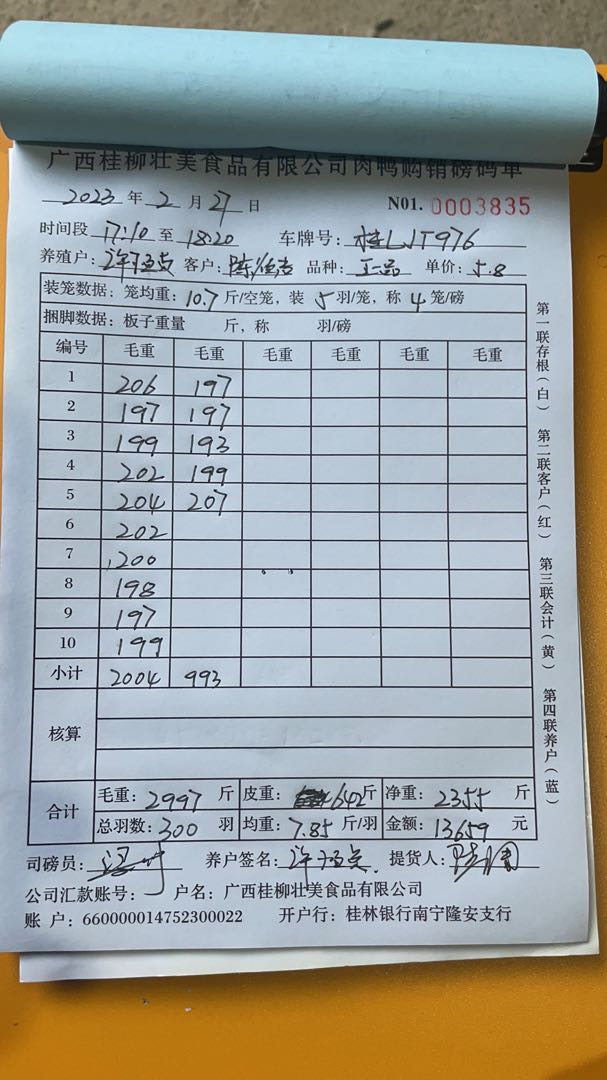 广西桂柳壮美食品有限公司肉鸭购销磅码单
2023 年 2 月 27 日 N01. 0003835
时间段 17:10 至 18:20 车牌号: 桂LJT976
养殖户: 客户: 品种: 正品 单价: 5.8
装笼数据: 笼均重: 10.7 斤/空笼, 装 5 羽/笼, 称 4 笼/磅
捆脚数据: 板子重量 斤, 称 羽/磅
编号 毛重 毛重 毛重 毛重 毛重 毛重
1 206 197
2 197 197
3 199 193
4 202 199
5 204 207
6 202
7 200
8 198
9 197
10 199
小计 2004 993
核算
合计 毛重: 2997 斤 皮重: 642 斤 净重: 2355 斤
总羽数: 300 羽 均重: 7.85 斤/羽 金额: 13659 元
司磅员: 养户签名: 提货人:
公司汇款账号: 户名: 广西桂柳壮美食品有限公司
账 户: 660000014752300022 开户行: 桂林银行南宁隆安支行
第一联存根(白) 第二联客户(红) 第三联会计(黄) 第四联养户(蓝)